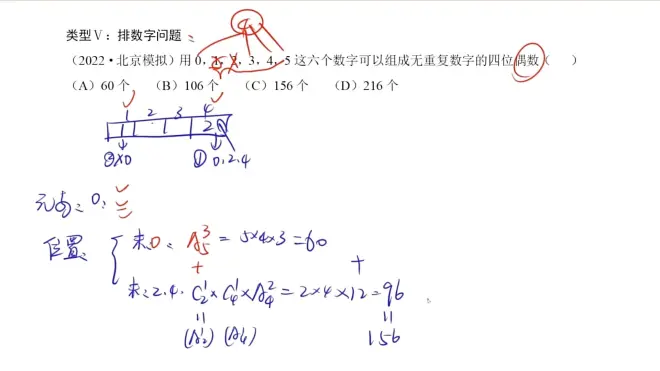 类型Ⅴ：排数字问题：
（2022·北京模拟）用0，1，2，3，4，5这六个数字可以组成无重复数字的四位偶数（ ）
（A）60个 （B）106个 （C）156个 （D）216个
1 2 3 4
②×0 ① 0.2.4
元素：0.
位置：
末：0： A₅³ = 5×4×3=60
+ +
末：2.4. C₂¹×C₄¹×A₄² = 2×4×12=96
= =
(A₂¹) (A₄¹) 156